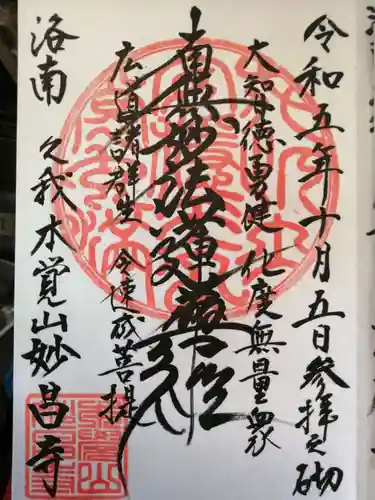 令和五年十月五日参拝之砌
大智徳勇健 化度無量衆
南無妙法蓮華経
広導諸群生 令速成菩提
洛南 久我 本覚山妙昌寺